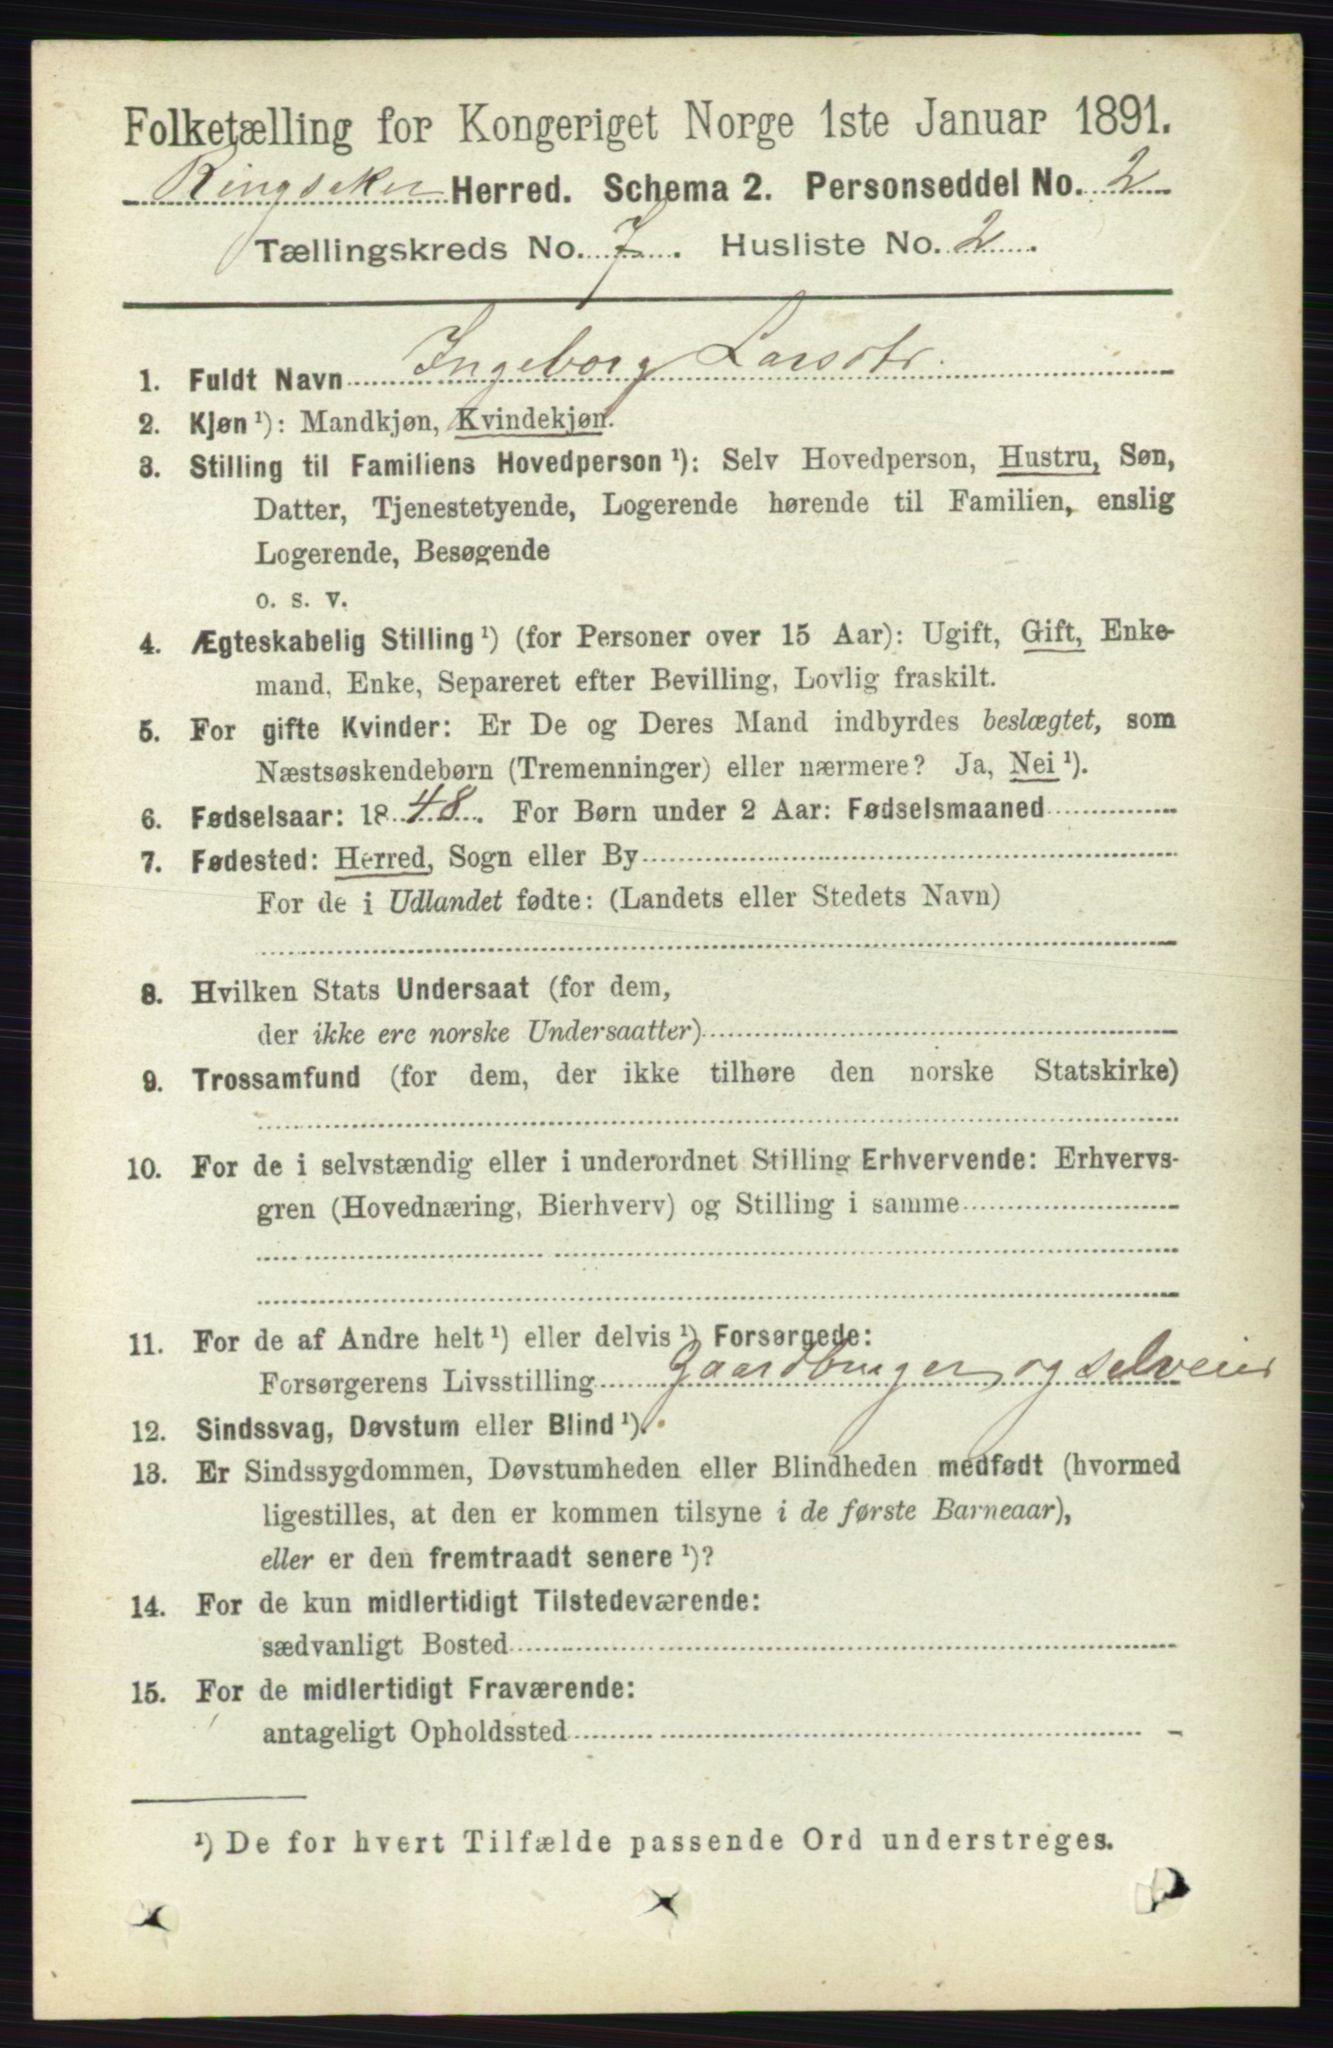 Folketælling for Kongeriget Norge 1ste Januar 1891.
Ringsaker Herred. Schema 2. Personseddel No. 2
Tællingskreds No. 7. Husliste No. 2.
1. Fuldt Navn Ingeborg Larsdtr.
2. Kjøn¹): Mandkjøn, Kvindekjøn.
3. Stilling til Familiens Hovedperson¹): Selv Hovedperson, Hustru, Søn,
Datter, Tjenestetyende, Logerende hørende til Familien, enslig
Logerende, Besøgende
o. s. v.
4. Ægteskabelig Stilling¹) (for Personer over 15 Aar): Ugift, Gift, Enke-
mand, Enke, Separeret efter Bevilling, Lovlig fraskilt.
5. For gifte Kvinder: Er De og Deres Mand indbyrdes beslægtet, som
Næstsøskendebørn (Tremenninger) eller nærmere? Ja, Nei¹).
6. Fødselsaar: 1848. For Børn under 2 Aar: Fødselsmaaned
7. Fødested: Herred, Sogn eller By
For de i Udlandet fødte: (Landets eller Stedets Navn)
8. Hvilken Stats Undersaat (for dem,
der ikke ere norske Undersaatter)
9. Trossamfund (for dem, der ikke tilhøre den norske Statskirke)
10. For de i selvstændig eller i underordnet Stilling Erhvervende: Erhvervs-
gren (Hovednæring, Bierhverv) og Stilling i samme
11. For de af Andre helt¹) eller delvis¹) Forsørgede:
Forsørgerens Livsstilling Gaardbruger og selveier
12. Sindssvag, Døvstum eller Blind¹).
13. Er Sindssygdommen, Døvstumheden eller Blindheden medfødt (hvormed
ligestilles, at den er kommen tilsyne i de første Barneaar),
eller er den fremtraadt senere¹)?
14. For de kun midlertidigt Tilstedeværende:
sædvanligt Bosted
15. For de midlertidigt Fraværende:
antageligt Opholdssted
¹) De for hvert Tilfælde passende Ord understreges.